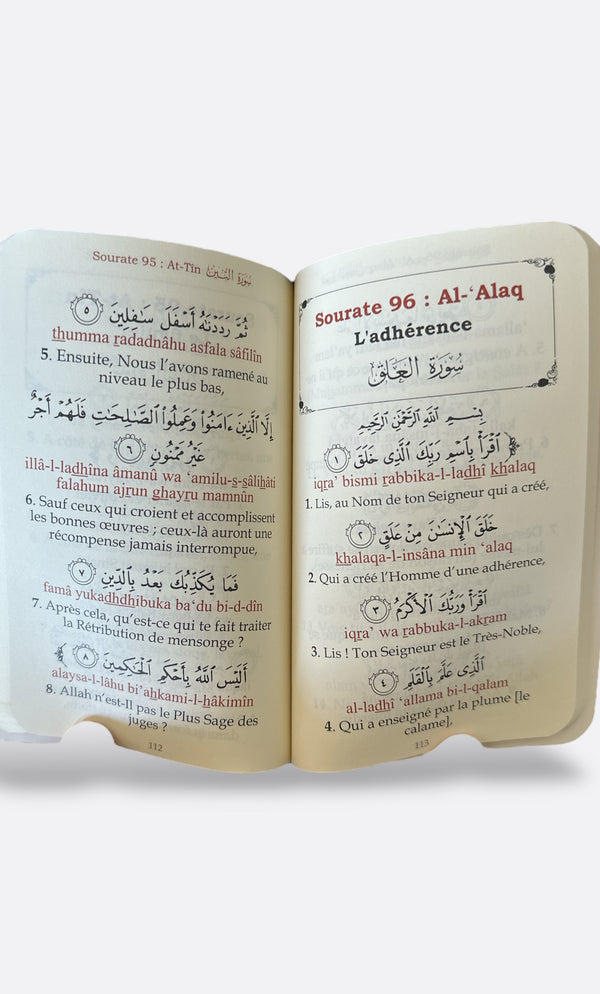 Sourate 95 : At-Tîn سُورَةُ التِّينِ
ثُمَّ رَدَدۡنَٰهُ أَسۡفَلَ سَٰفِلِينَ ٥
thumma radadnâhu asfala sâfilîn
5. Ensuite, Nous l’avons ramené au
niveau le plus bas,
إِلَّا ٱلَّذِينَ ءَامَنُواْ وَعَمِلُواْ ٱلصَّٰلِحَٰتِ فَلَهُمۡ أَجۡرٌ
غَيۡرُ مَمۡنُونٖ ٦
illâ-l-ladhîna âmanû wa ‘amilu-s-sâlihâti
falahum ajrun ghayru mamnûn
6. Sauf ceux qui croient et accomplissent
les bonnes œuvres ; ceux-là auront une
récompense jamais interrompue,
فَمَا يُكَذِّبُكَ بَعۡدُ بِٱلدِّينِ ٧
famâ yukadhdhibuka ba‘du bi-d-dîn
7. Après cela, qu’est-ce qui te fait traiter
la Rétribution de mensonge ?
أَلَيۡسَ ٱللَّهُ بِأَحۡكَمِ ٱلۡحَٰكِمِينَ ٨
alaysa-l-lâhu bi’ahkami-l-hâkimîn
8. Allah n’est-Il pas le Plus Sage des
juges ?
112
Sourate 96 : Al-‘Alaq
L'adhérence
سُورَةُ العَلَقِ
بِسۡمِ ٱللَّهِ ٱلرَّحۡمَٰنِ ٱلرَّحِيمِ
ٱقۡرَأۡ بِٱسۡمِ رَبِّكَ ٱلَّذِي خَلَقَ ١
iqra’ bismi rabbika-l-ladhî khalaq
1. Lis, au Nom de ton Seigneur qui a créé,
خَلَقَ ٱلۡإِنسَٰنَ مِنۡ عَلَقٍ ٢
khalaqa-l-insâna min ‘alaq
2. Qui a créé l’Homme d’une adhérence,
ٱقۡرَأۡ وَرَبُّكَ ٱلۡأَكۡرَمُ ٣
iqra’ wa rabbuka-l-akram
3. Lis ! Ton Seigneur est le Très-Noble,
ٱلَّذِي عَلَّمَ بِٱلۡقَلَمِ ٤
al-ladhî ‘allama bi-l-qalam
4. Qui a enseigné par la plume [le
calame],
113